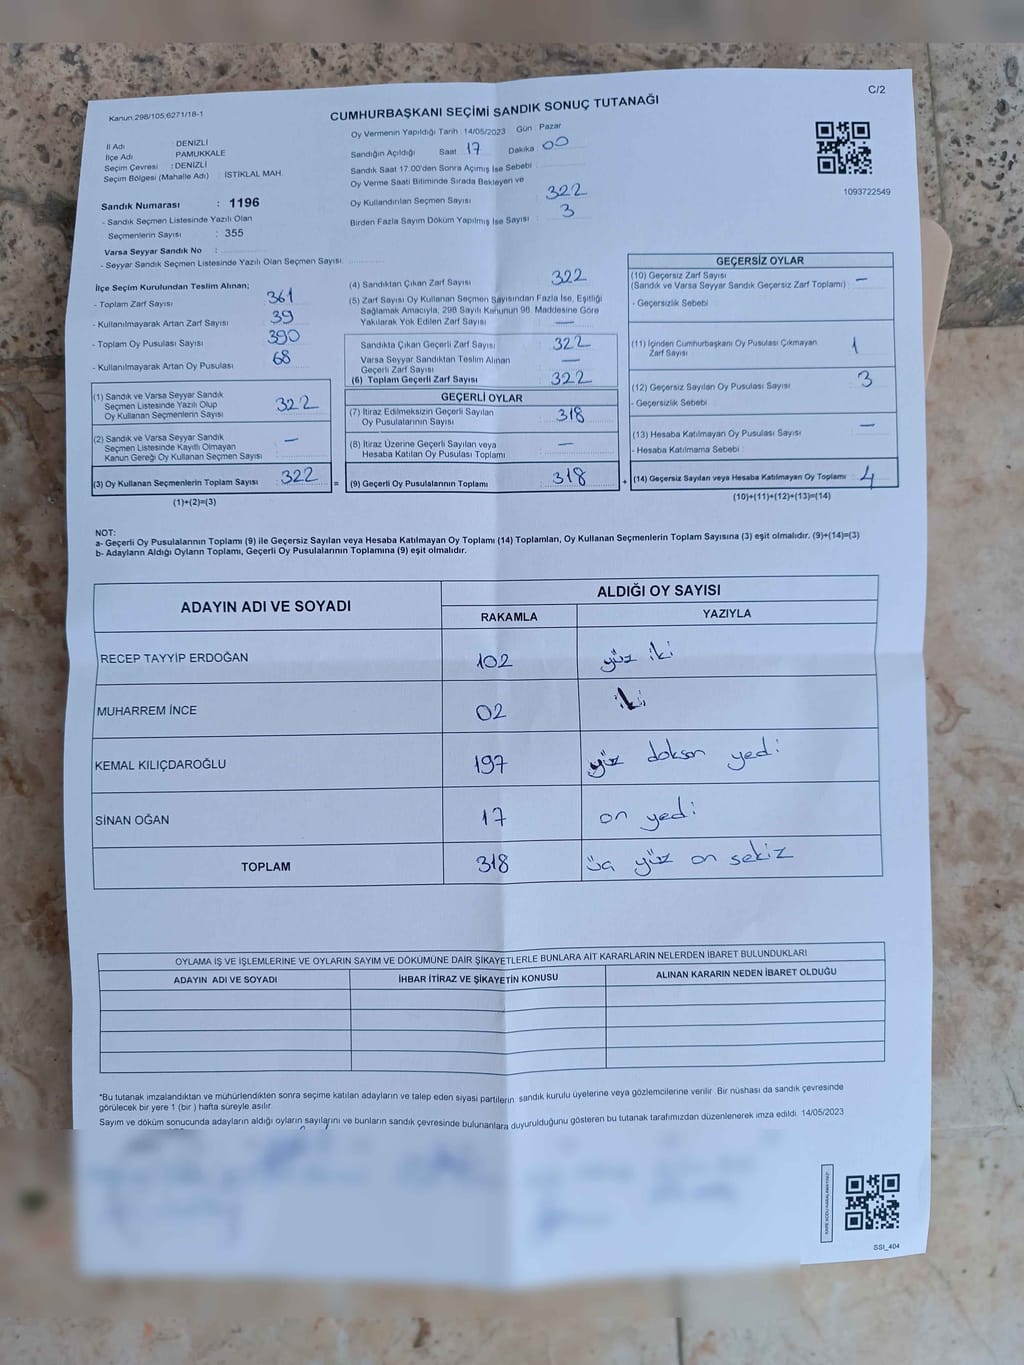 Kanun.298/105;6271/18-1
CUMHURBAŞKANI SEÇİMİ SANDIK SONUÇ TUTANAĞI
C/2
İl Adı : DENİZLİ
İlçe Adı PAMUKKALE
Seçim Çevresi : DENİZLİ
Seçim Bölgesi (Mahalle Adı) : İSTİKLAL MAH.
Sandık Numarası : 1196
- Sandık Seçmen Listesinde Yazılı Olan
Seçmenlerin Sayısı : 355
Varsa Seyyar Sandık No :
- Seyyar Sandık Seçmen Listesinde Yazılı Olan Seçmen Sayısı:
Oy Vermenin Yapıldığı Tarih : 14/05/2023 Gün Pazar
Sandığın Açıldığı Saat 17 Dakika 00
Sandık Saat 17.00'den Sonra Açımış İse Sebebi :
Oy Verme Saati Bitiminde Sırada Bekleyen ve
Oy Kullandırılan Seçmen Sayısı : 322
Birden Fazla Sayım Döküm Yapılmış İse Sayısı : 3
1093722549
İlçe Seçim Kurulundan Teslim Alınan;
- Toplam Zarf Sayısı 361
- Kullanılmayarak Artan Zarf Sayısı 39
- Toplam Oy Pusulası Sayısı 390
- Kullanılmayarak Artan Oy Pusulası 68
(1) Sandık ve Varsa Seyyar Sandık
Seçmen Listesinde Yazılı Olup
Oy Kullanan Seçmenlerin Sayısı 322
(2) Sandık ve Varsa Seyyar Sandık
Seçmen Listesinde Kayıtlı Olmayan
Kanun Gereği Oy Kullanan Seçmen Sayısı : —
(3) Oy Kullanan Seçmenlerin Toplam Sayısı 322
(1)+(2)=(3)
(4) Sandıktan Çıkan Zarf Sayısı 322
(5) Zarf Sayısı Oy Kullanan Seçmen Sayısından Fazla İse, Eşitliği
Sağlamak Amacıyla, 298 Sayılı Kanunun 98. Maddesine Göre
Yakılarak Yok Edilen Zarf Sayısı —
Sandıkta Çıkan Geçerli Zarf Sayısı 322
Varsa Seyyar Sandıktan Teslim Alınan
Geçerli Zarf Sayısı —
(6) Toplam Geçerli Zarf Sayısı 322
GEÇERLİ OYLAR
(7) İtiraz Edilmeksizin Geçerli Sayılan
Oy Pusulalarının Sayısı 318
(8) İtiraz Üzerine Geçerli Sayılan veya
Hesaba Katılan Oy Pusulası Toplamı —
= (9) Geçerli Oy Pusulalarının Toplamı 318
GEÇERSİZ OYLAR
(10) Geçersiz Zarf Sayısı
(Sandık ve Varsa Seyyar Sandık Geçersiz Zarf Toplamı) : —
- Geçersizlik Sebebi
(11) İçinden Cumhurbaşkanı Oy Pusulası Çıkmayan
Zarf Sayısı 1
(12) Geçersiz Sayılan Oy Pusulası Sayısı 3
- Geçersizlik Sebebi
(13) Hesaba Katılmayan Oy Pusulası Sayısı —
- Hesaba Katılmama Sebebi :
+ (14) Geçersiz Sayılan veya Hesaba Katılmayan Oy Toplamı : 4
(10)+(11)+(12)+(13)=(14)
NOT:
a- Geçerli Oy Pusulalarının Toplamı (9) ile Geçersiz Sayılan veya Hesaba Katılmayan Oy Toplamı (14) Toplamları, Oy Kullanan Seçmenlerin Toplam Sayısına (3) eşit olmalıdır. (9)+(14)=(3)
b- Adayların Aldığı Oyların Toplamı, Geçerli Oy Pusulalarının Toplamına (9) eşit olmalıdır.
ADAYIN ADI VE SOYADI
ALDIĞI OY SAYISI
RAKAMLA YAZIYLA
RECEP TAYYİP ERDOĞAN 102 yüz iki
MUHARREM İNCE 02 iki
KEMAL KILIÇDAROĞLU 197 yüz doksan yedi
SİNAN OĞAN 17 on yedi
TOPLAM 318 üç yüz on sekiz
OYLAMA İŞ VE İŞLEMLERİNE VE OYLARIN SAYIM VE DÖKÜMÜNE DAİR ŞİKAYETLERLE BUNLARA AİT KARARLARIN NELERDEN İBARET BULUNDUKLARI
ADAYIN ADI VE SOYADI İHBAR İTİRAZ VE ŞİKAYETİN KONUSU ALINAN KARARIN NEDEN İBARET OLDUĞU
*Bu tutanak imzalandıktan ve mühürlendikten sonra seçime katılan adayların ve talep eden siyasi partilerin sandık kurulu üyelerine veya gözlemcilerine verilir. Bir nüshası da sandık çevresinde
görülecek bir yere 1 (bir ) hafta süreyle asılır.
Sayım ve döküm sonucunda adayların aldığı oyların sayılarını ve bunların sandık çevresinde bulunanlara duyurulduğunu gösteren bu tutanak tarafımızdan düzenlenerek imza edildi. 14/05/2023
SSI_404